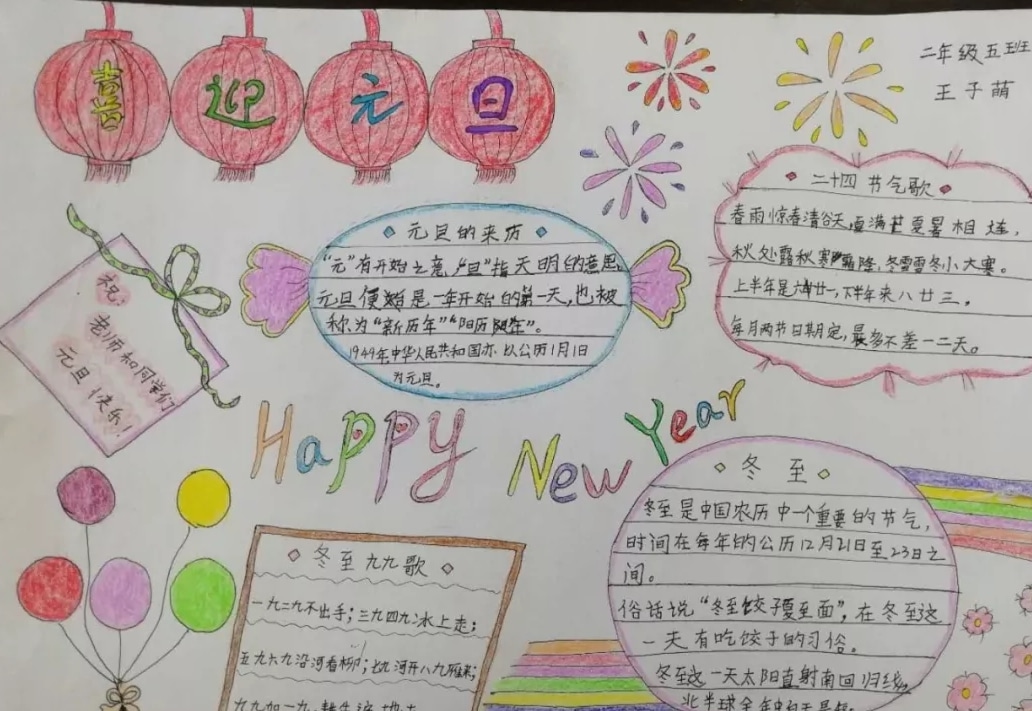 喜迎元旦
二年级五班
王子萌
祝:
老师和同学们
元旦快乐!
元旦的来历
"元"有开始之意,"旦"指天明的意思。
元旦便始是一年开始的第一天,也被
称为"新历年""阳历年"。
1949年中华人民共和国亦以公历1月1日
为元旦。
二十四节气歌
春雨惊春清谷天,夏满芒夏暑相连,
秋处露秋寒霜降,冬雪雪冬小大寒。
上半年是六廿一,下半年来八廿三,
每月两节日期定,最多不差一二天。
Happy New Year
冬至
冬至是中国农历中一个重要的节气,
时间在每年的公历12月21日至23日之
间。
俗话说"冬至饺子夏至面",在冬至这
一天有吃饺子的习俗。
冬至这一天太阳直射南回归线,
北半球全年中白天最短
冬至九九歌
一九二九不出手;三九四九冰上走;
五九六九沿河看柳;七九河开八九雁来;
九九加一九,耕牛遍地走